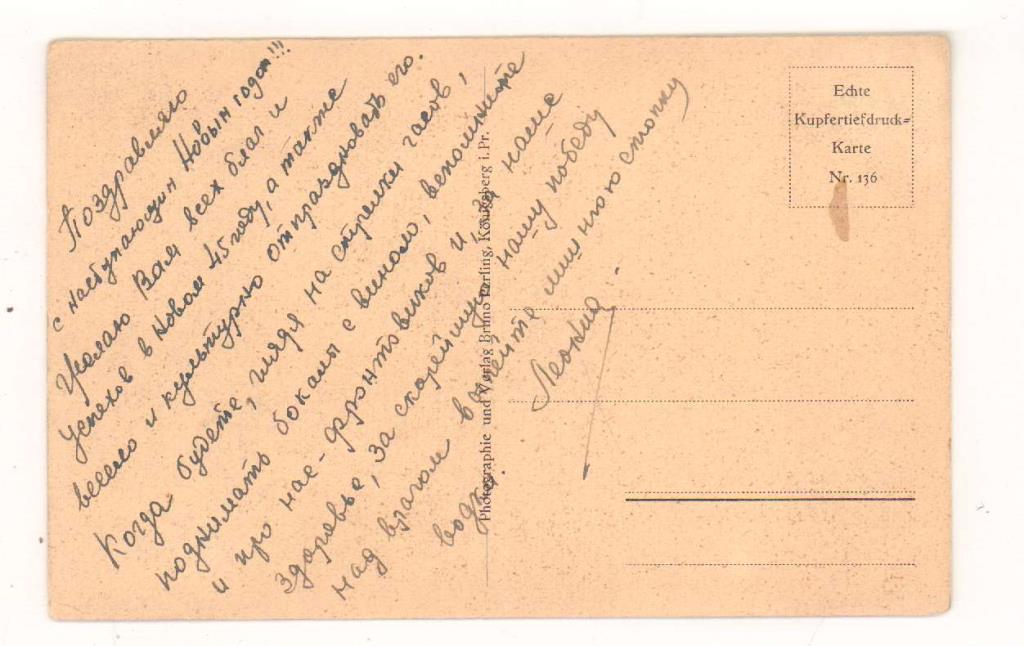 Поздравляю
с наступающим Новым годом!!!
Желаю Вам всех благ и
успехов в Новом 45 году, а также
весело и культурно отпраздновать его.
Когда будете, глядя на стрелки часов,
поднимать бокалы с вином, вспомните
и про нас - фронтовиков и за наше
здоровье, за скорейшую нашу победу
над врагом выпейте лишнюю стопку
водки.
Леонид.
Photographie und Verlag Bruno Perling, Königsberg i. Pr.
Echte
Kupfertiefdruck=
Karte
Nr. 136